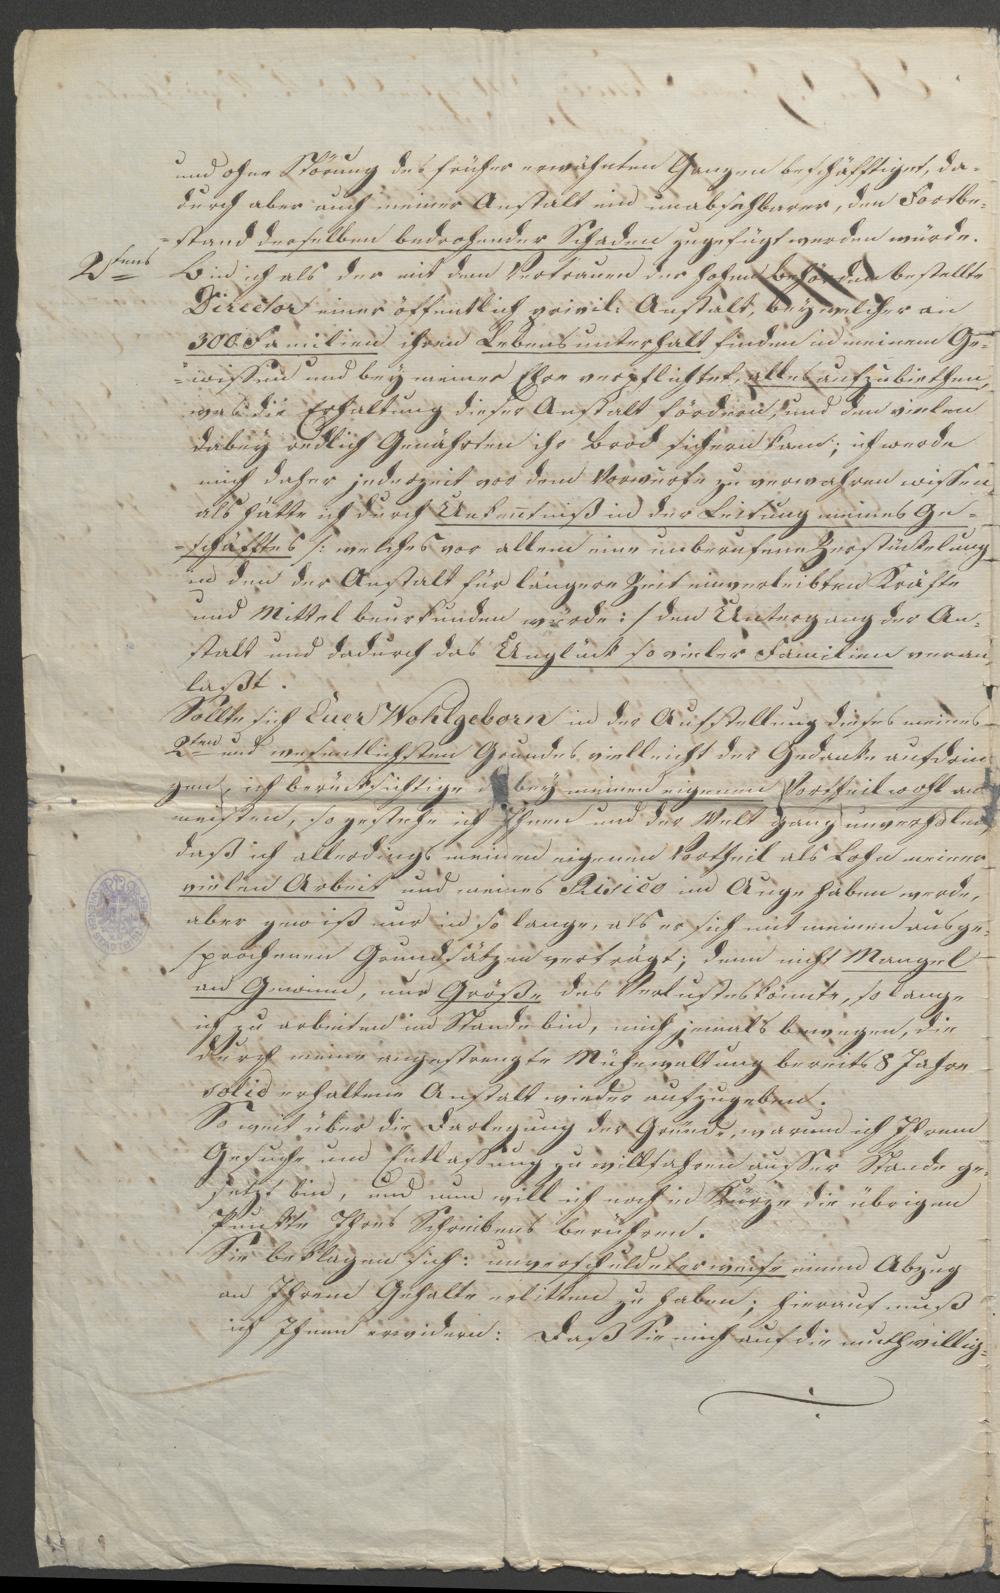 und ohne Störung des früher erwähnten Ganzen beschäfftiget, da-
durch aber auch meiner Anstalt ein unabsehbarer, den Fortbe-
-stand derselben bedrohender Schaden zugefügt werden würde.
2tens Bin ich als der mit dem Vertrauen der hohen Behörden bestellte
Director einer öffentlich privil: Anstalt, bey welcher an
300 Familien ihren Lebensunterhalt finden in meinem Ge-
-wissen und bey meiner Ehre verpflichtet, alles aufzubiethen,
was die Erhaltung dieser Anstalt fördern, und den vielen
dabey redlich Genährten ihr Brod sichern kann; ich werde
mich daher jederzeit vor dem Vorwurfe zu verwahren wissen
als hätte ich durch Unkenntniß in der Leitung meines Ge-
-schäfftes /: welches vor allem eine unberufene Zerstückelung
in den der Anstalt für längere Zeit einverleibten Kräfte
und Mittel beurkunden würde :/ den Untergang der An-
stalt und dadurch das Unglück so vieler Familien veran-
laßt.
Sollte sich Euer Wohlgeborn in der Aufstellung dieses meines
2ten und wesentlichsten Grundes vielleicht der Gedanke aufdrin
gen, ich berücksichtige dabey meinen eigenen Vortheil wohl am
meisten, so gestehe ich Ihnen und der Welt ganz unverholen
daß ich allerdings meinen eigenen Vortheil als Lohn meiner
vielen Arbeit und meines Risico im Auge haben werde,
aber gewiß nur in so lange, als er sich mit meinen ausge-
sprochenen Grundsätzen verträgt; denn nicht Mangel
an Gewinn, nur Größe des Verlustes könnte, so lange
ich zu arbeiten im Stande bin, mich jemals bewegen, die
durch meine angestrengte Mühewaltung bereits 8 Jahre
solid erhaltene Anstalt wieder aufzugeben.
So weit über die Darlegung der Gründe, warum ich Ihrem
Gesuche um Entlassung zu willfahren ausser Stande ge-
setzt bin, und nun will ich noch in Kürze die übrigen
Punkte Ihres Schreibens berühren.
Sie beklagen sich: unverschuldeterweise einen Abzug
an Ihrem Gehalte erlitten zu haben; hierauf muß
ich Ihnen erwidern: Daß Sie mich auf die muthwillig-